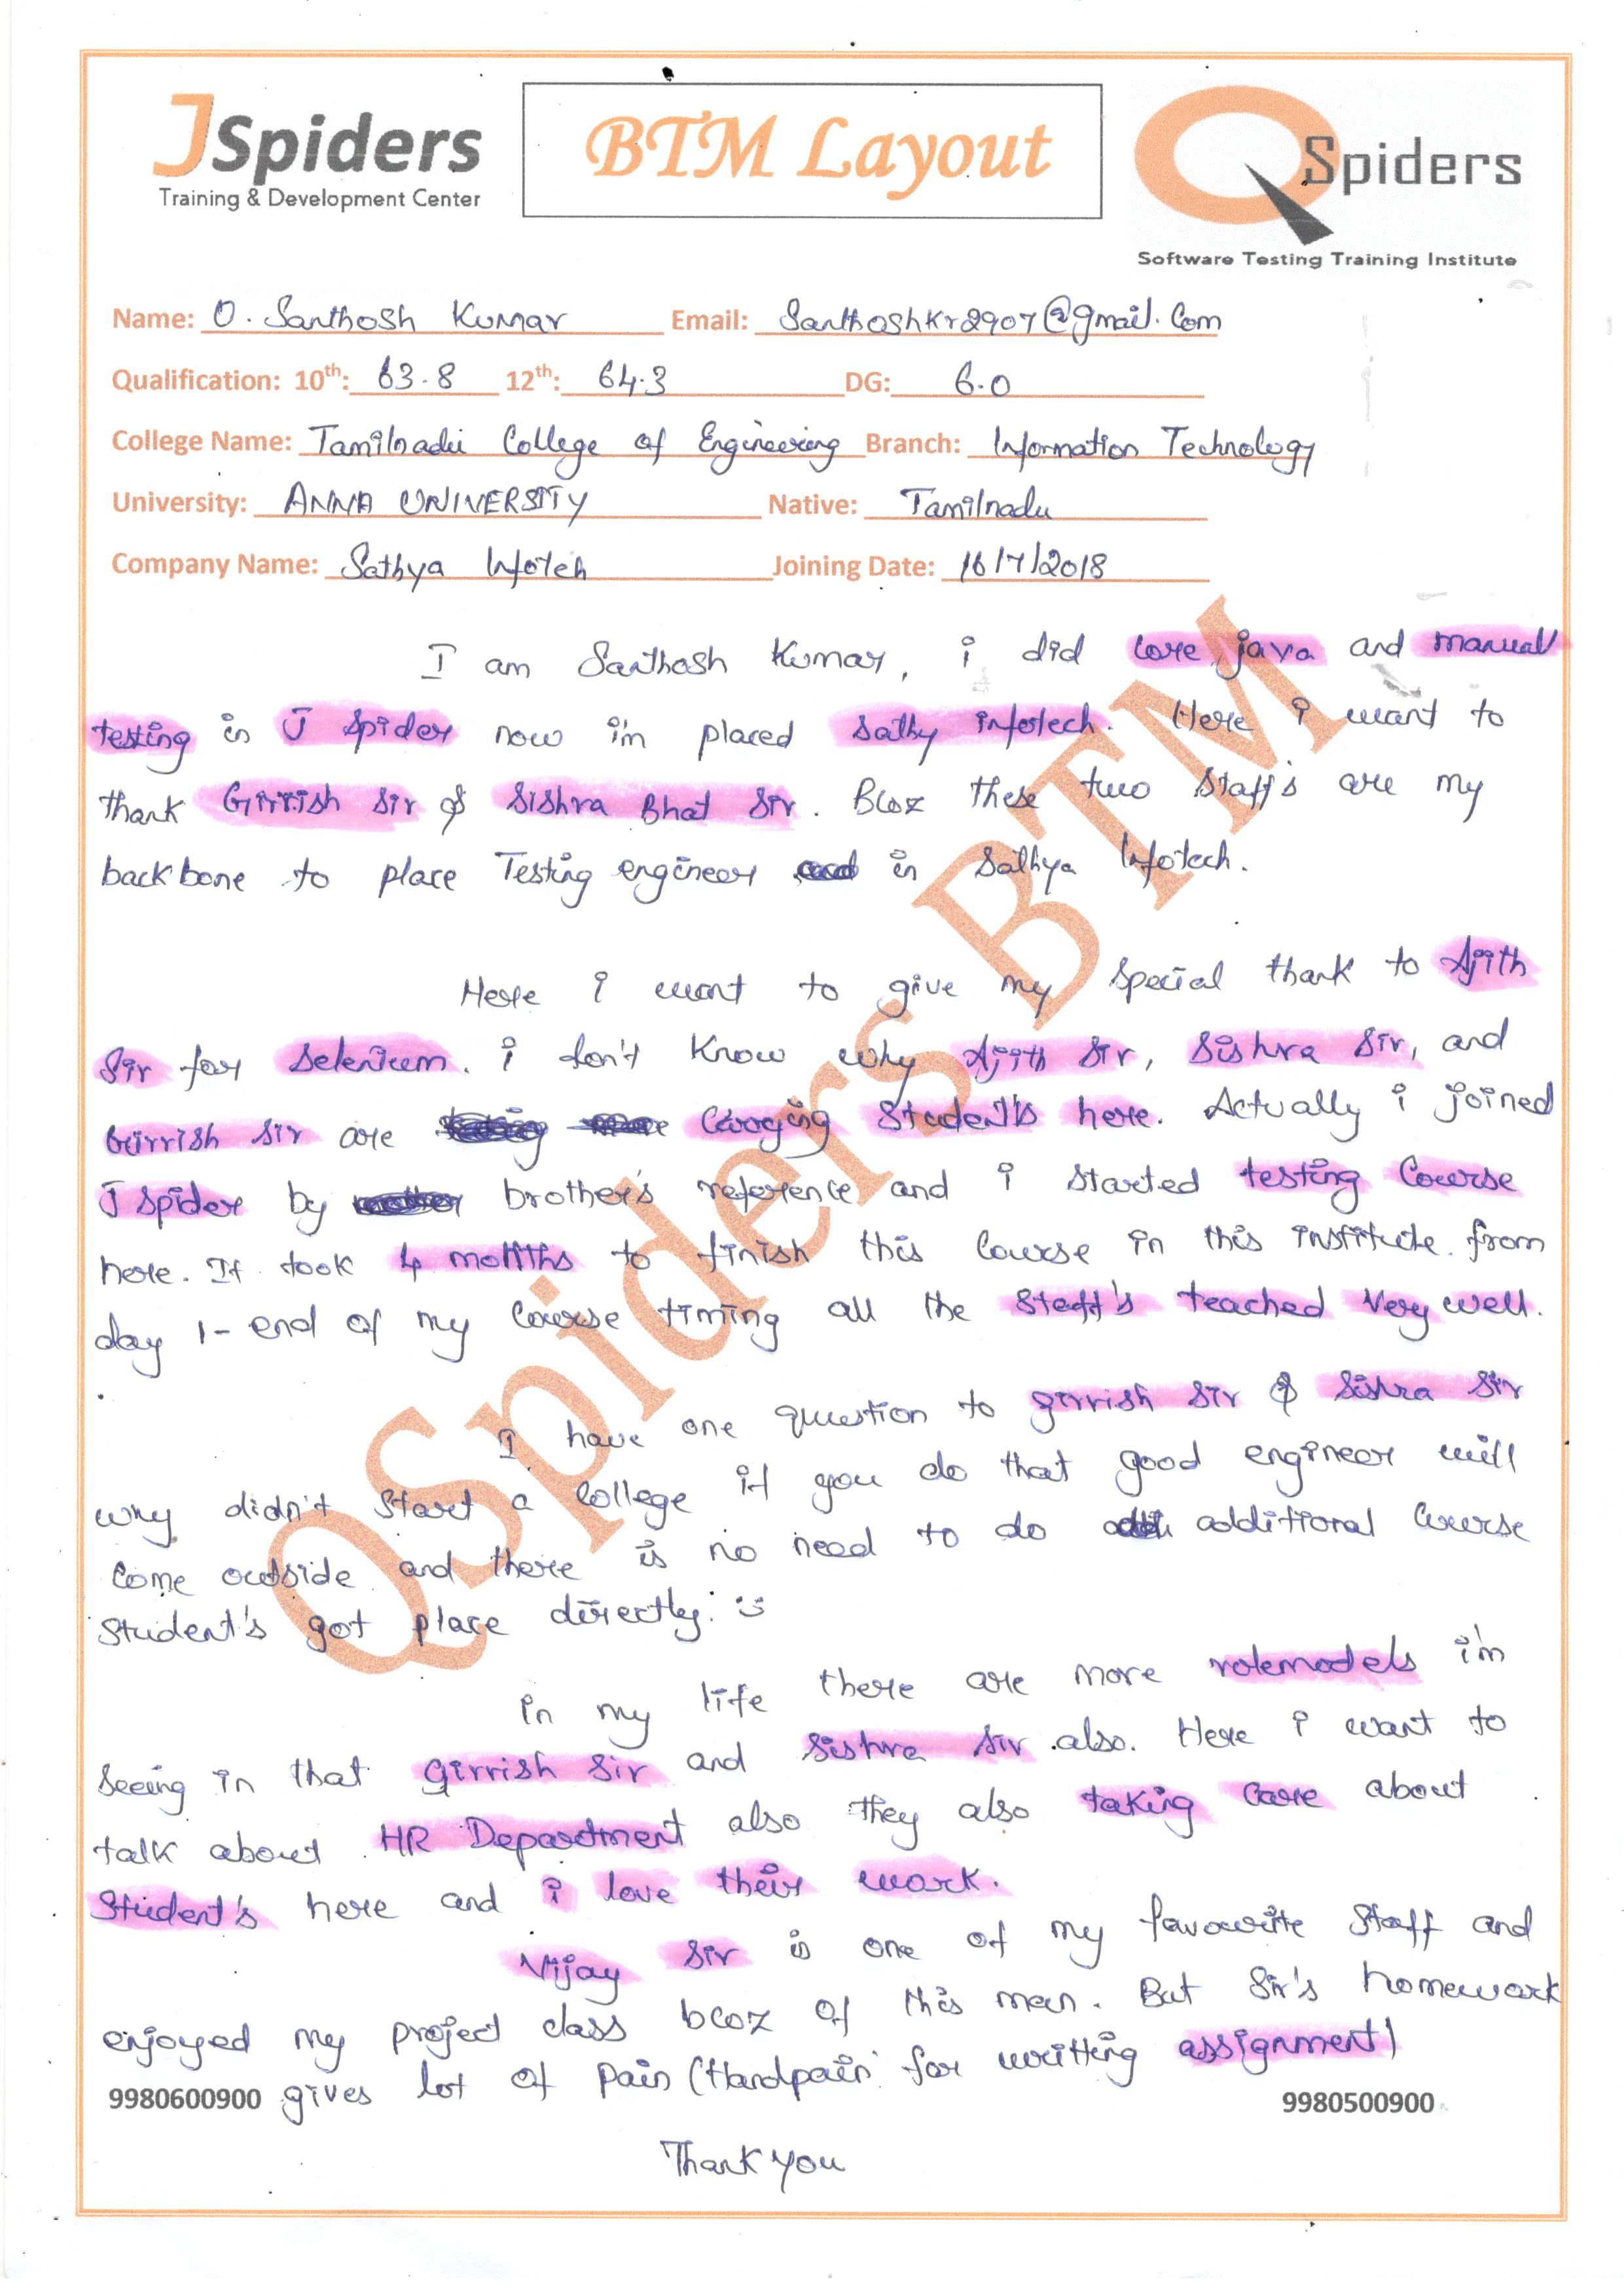 JSpiders
Training & Development Center
BTM Layout
QSpiders
Software Testing Training Institute
Name: O. Santhosh Kumar Email: Santhoshkr2907@gmail.com
Qualification: 10th: 63.8 12th: 64.3 DG: 6.0
College Name: Tamilnadu College of Engineering Branch: Information Technology
University: ANNA UNIVERSITY Native: Tamilnadu
Company Name: Sathya Infotech Joining Date: 16/7/2018
I am Santhosh Kumar, i did core java and manual
testing in J Spider now i'm placed Sathy infotech. Here i want to
thank Girrish Sir & Sishra Bhat Sir. Bcoz these two Staff's are my
backbone to place Testing engineer in Sathya Infotech.
Here i want to give my Special thank to Ajith
Sir for Selenium. i don't know why Ajith Sir, Sishra Sir, and
Girrish Sir are Caring Student's here. Actually i joined
J Spider by brother's reference and i started testing Course
here. It took 4 months to finish this Course in this institute. from
day 1- end of my Course timing all the Staff's teached Very well.
I have one question to girrish Sir & Sishra Sir
why didn't Start a College if you do that good engineer will
Come outside and there is no need to do additional Course
Student's got place directly. :)
in my life there are more rolemodels i'm
Seeing in that Girrish Sir and Sishra Sir also. Here i want to
talk about HR Department also they also taking care about
Student's here and i love their work.
Vijay Sir is one of my favourite Staff and
enjoyed my project class bcoz of this man. But Sir's homework
gives lot of pain (Handpain for writting assignment)
9980600900
9980500900
Thank you
QSpiders BTM